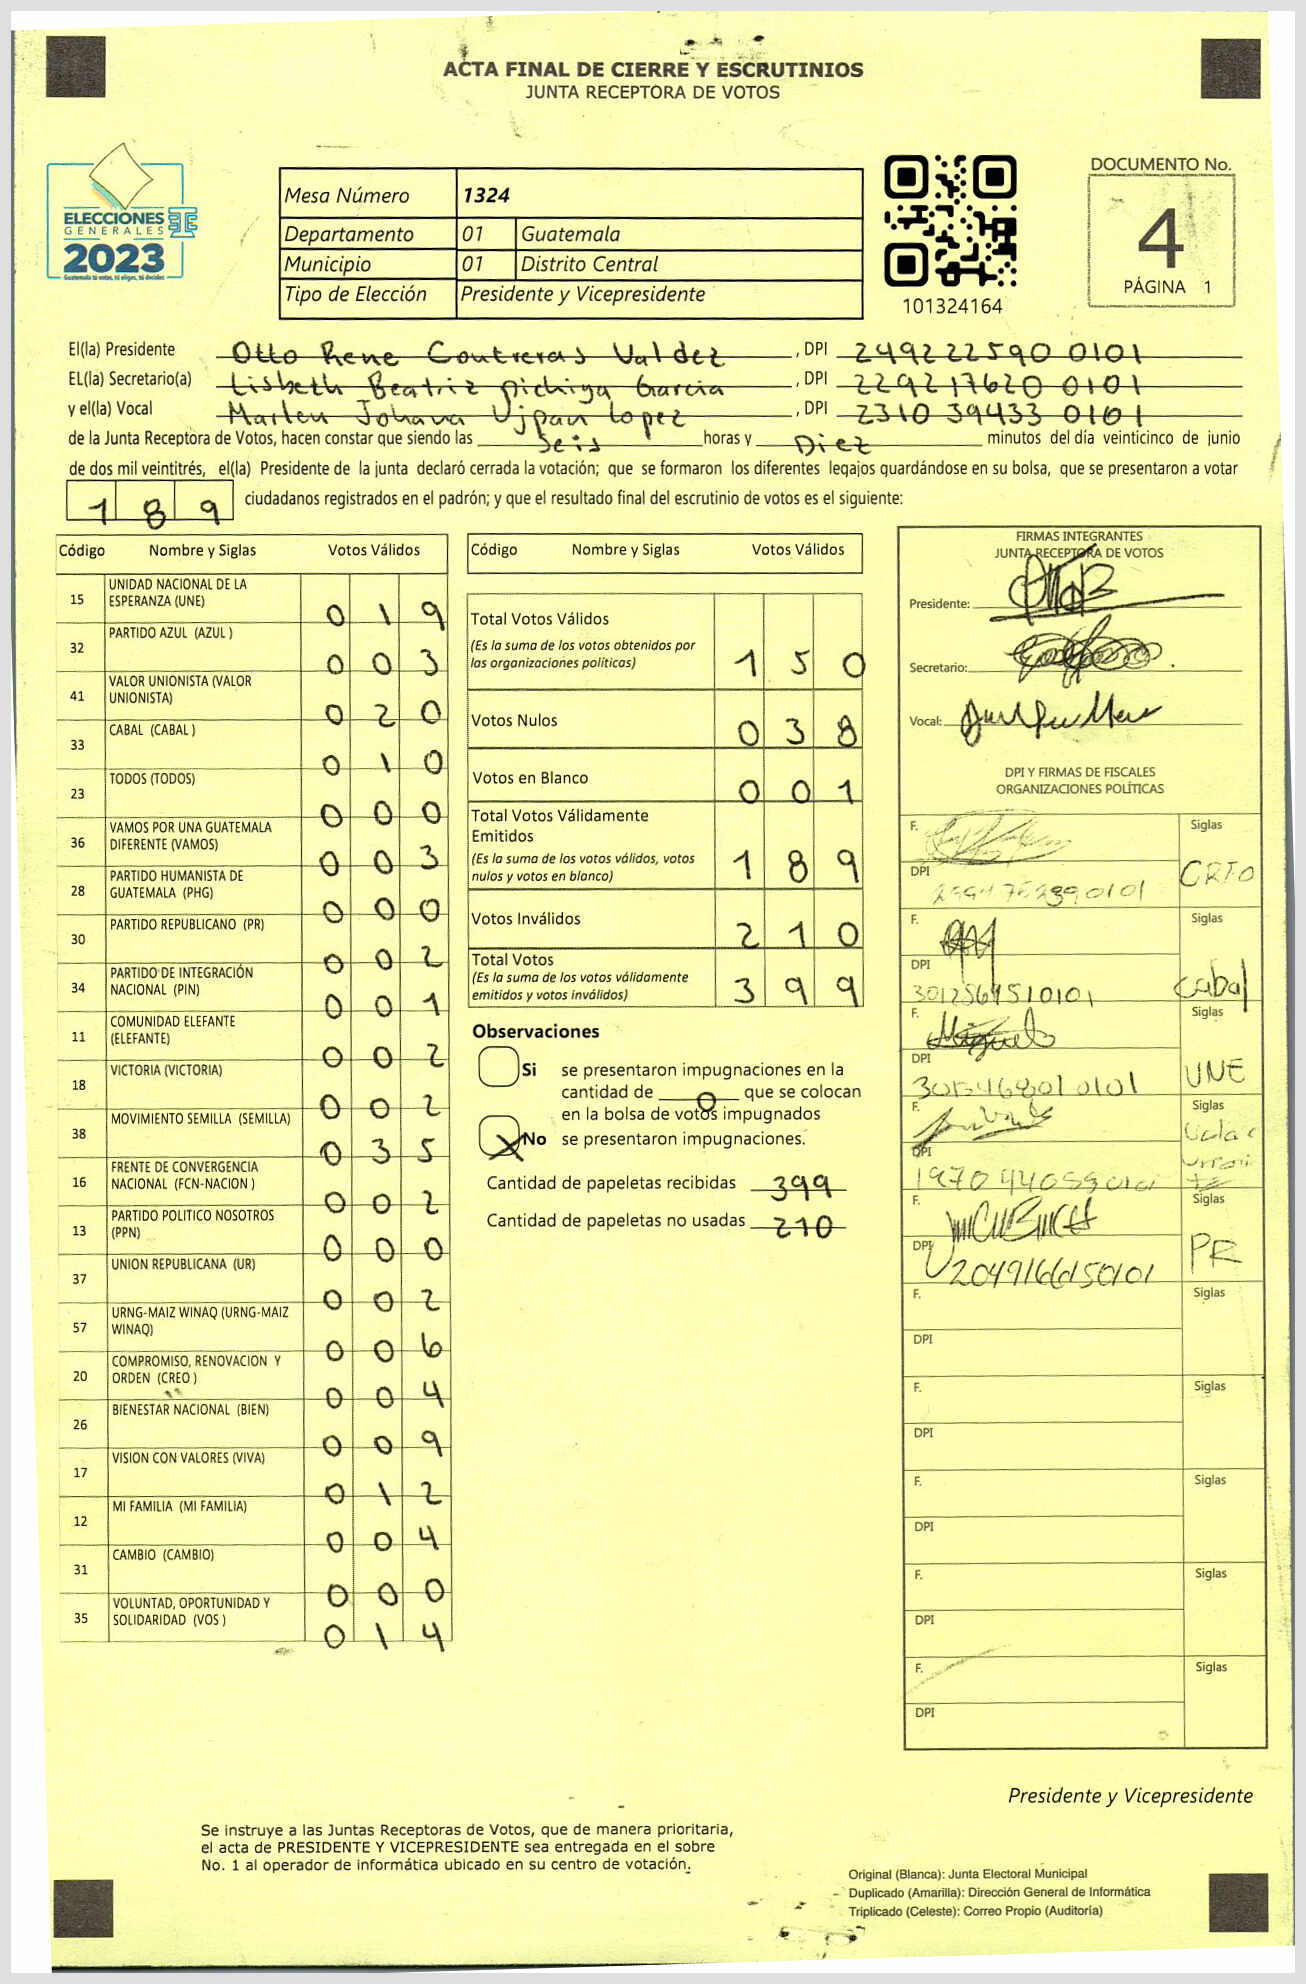 ACTA FINAL DE CIERRE Y ESCRUTINIOS
JUNTA RECEPTORA DE VOTOS
ELECCIONES
GENERALES
2023
Guatemala tú votas, tú eliges, tú decides
Mesa Número 1324
Departamento 01 Guatemala
Municipio 01 Distrito Central
Tipo de Elección Presidente y Vicepresidente
101324164
DOCUMENTO No.
4
PÁGINA 1
El(la) Presidente Otto Rene Contreras Valdez , DPI 249222590 0101
EL(la) Secretario(a) Lisbeth Beatriz Pichiya Garcia , DPI 229217620 0101
y el(la) Vocal Marlen Johana Ujpan Lopez , DPI 2310 39433 0101
de la Junta Receptora de Votos, hacen constar que siendo las Seis horas y Diez minutos del día veinticinco de junio
de dos mil veintitrés, el(la) Presidente de la junta declaró cerrada la votación; que se formaron los diferentes legajos guardándose en su bolsa, que se presentaron a votar
189 ciudadanos registrados en el padrón; y que el resultado final del escrutinio de votos es el siguiente:
Código Nombre y Siglas Votos Válidos
15 UNIDAD NACIONAL DE LA ESPERANZA (UNE) 019
32 PARTIDO AZUL (AZUL ) 003
41 VALOR UNIONISTA (VALOR UNIONISTA) 020
33 CABAL (CABAL ) 010
23 TODOS (TODOS) 000
36 VAMOS POR UNA GUATEMALA DIFERENTE (VAMOS) 003
28 PARTIDO HUMANISTA DE GUATEMALA (PHG) 000
30 PARTIDO REPUBLICANO (PR) 002
34 PARTIDO DE INTEGRACIÓN NACIONAL (PIN) 001
11 COMUNIDAD ELEFANTE (ELEFANTE) 002
18 VICTORIA (VICTORIA) 002
38 MOVIMIENTO SEMILLA (SEMILLA) 035
16 FRENTE DE CONVERGENCIA NACIONAL (FCN-NACION ) 002
13 PARTIDO POLITICO NOSOTROS (PPN) 000
37 UNION REPUBLICANA (UR) 002
57 URNG-MAIZ WINAQ (URNG-MAIZ WINAQ) 006
20 COMPROMISO, RENOVACION Y ORDEN (CREO ) 004
26 BIENESTAR NACIONAL (BIEN) 009
17 VISION CON VALORES (VIVA) 012
12 MI FAMILIA (MI FAMILIA) 004
31 CAMBIO (CAMBIO) 000
35 VOLUNTAD, OPORTUNIDAD Y SOLIDARIDAD (VOS ) 014
Código Nombre y Siglas Votos Válidos
Total Votos Válidos 150
(Es la suma de los votos obtenidos por
las organizaciones políticas)
Votos Nulos 038
Votos en Blanco 001
Total Votos Válidamente
Emitidos 189
(Es la suma de los votos válidos, votos
nulos y votos en blanco)
Votos Inválidos 210
Total Votos 399
(Es la suma de los votos válidamente
emitidos y votos inválidos)
Observaciones
Si se presentaron impugnaciones en la
cantidad de 0 que se colocan
en la bolsa de votos impugnados
X No se presentaron impugnaciones.
Cantidad de papeletas recibidas 399
Cantidad de papeletas no usadas 210
FIRMAS INTEGRANTES
JUNTA RECEPTORA DE VOTOS
Presidente:
Secretario:
Vocal:
DPI Y FIRMAS DE FISCALES
ORGANIZACIONES POLÍTICAS
F. Siglas
DPI
F. Siglas
DPI Cabal
F. Siglas
DPI UNE
F. Siglas
DPI
F. Siglas
DPI 2049166150101 PR
F. Siglas
DPI
F. Siglas
DPI
F. Siglas
DPI
F. Siglas
DPI
F. Siglas
DPI
Presidente y Vicepresidente
Se instruye a las Juntas Receptoras de Votos, que de manera prioritaria,
el acta de PRESIDENTE Y VICEPRESIDENTE sea entregada en el sobre
No. 1 al operador de informática ubicado en su centro de votación.
Original (Blanca): Junta Electoral Municipal
Duplicado (Amarilla): Dirección General de Informática
Triplicado (Celeste): Correo Propio (Auditoría)